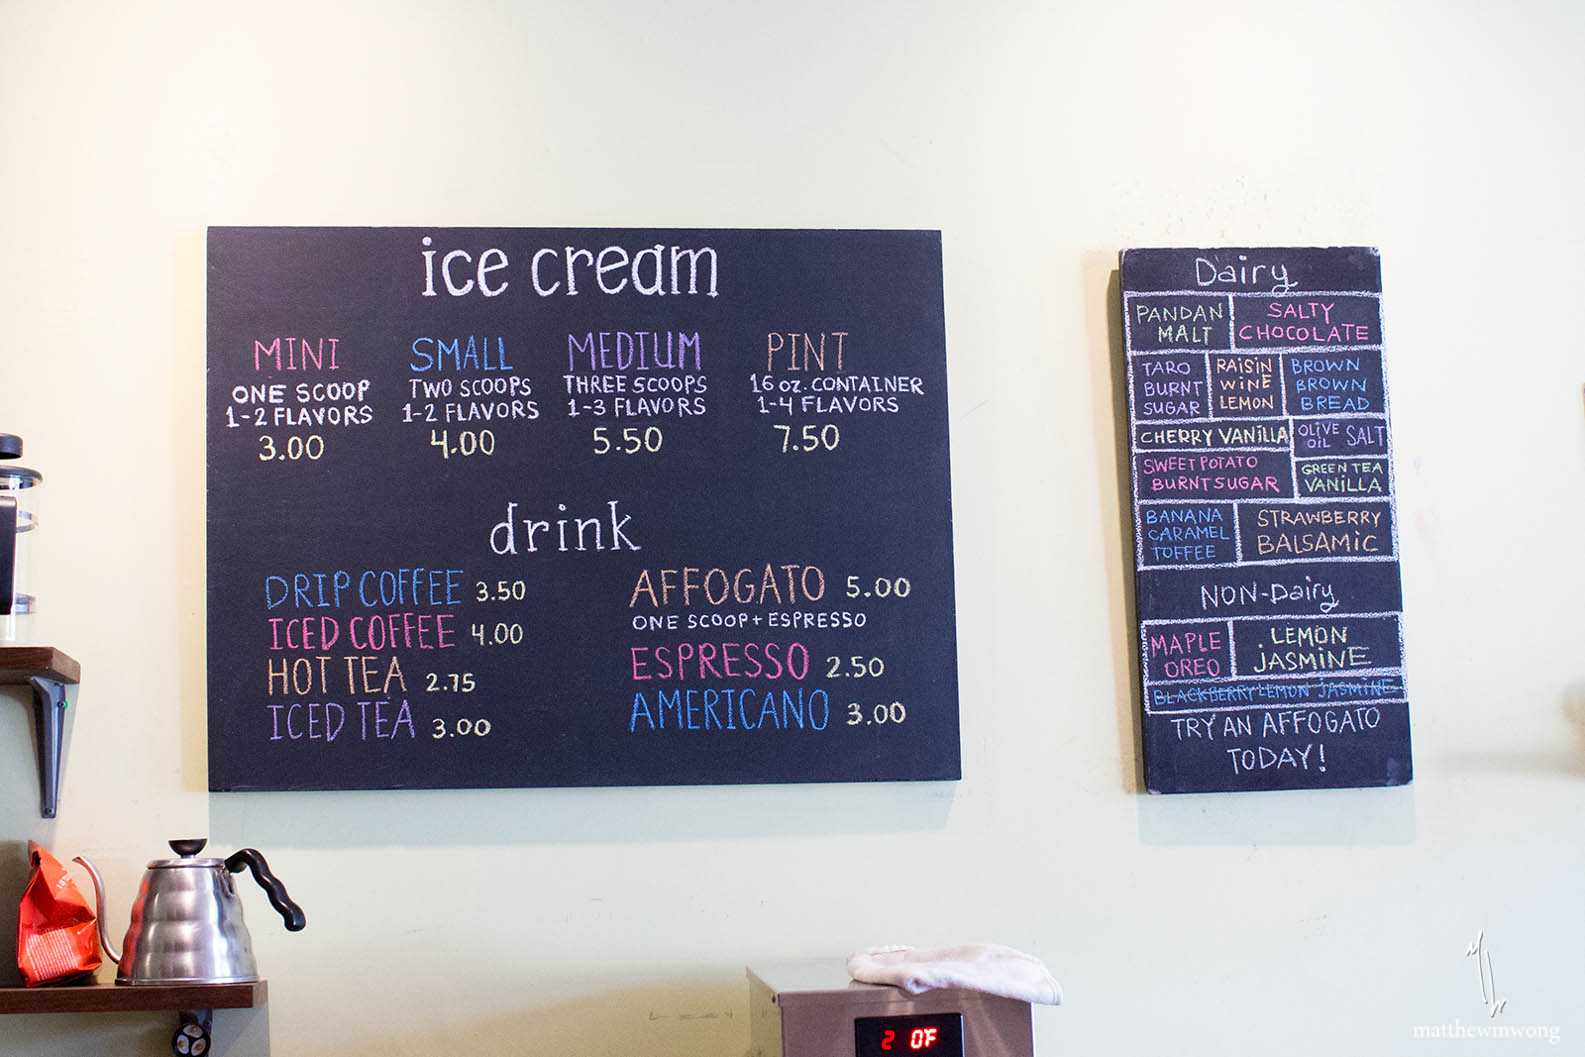 ice cream
MINI
ONE SCOOP
1-2 FLAVORS
3.00
SMALL
TWO SCOOPS
1-2 FLAVORS
4.00
MEDIUM
THREE SCOOPS
1-3 FLAVORS
5.50
PINT
16 oz. CONTAINER
1-4 FLAVORS
7.50
drink
DRIP COFFEE 3.50
ICED COFFEE 4.00
HOT TEA 2.75
ICED TEA 3.00
AFFOGATO 5.00
ONE SCOOP + ESPRESSO
ESPRESSO 2.50
AMERICANO 3.00
Dairy
PANDAN
MALT
SALTY
CHOCOLATE
TARO
BURNT
SUGAR
RAISIN
WINE
LEMON
BROWN
BROWN
BREAD
CHERRY VANILLA
OLIVE
OIL SALT
SWEET POTATO
BURNT SUGAR
GREEN TEA
VANILLA
BANANA
CARAMEL
TOFFEE
STRAWBERRY
BALSAMIC
NON-Dairy
MAPLE
OREO
LEMON
JASMINE
BLACKBERRY LEMON JASMINE
TRY AN AFFOGATO
TODAY!
2 0F
matthewmwong